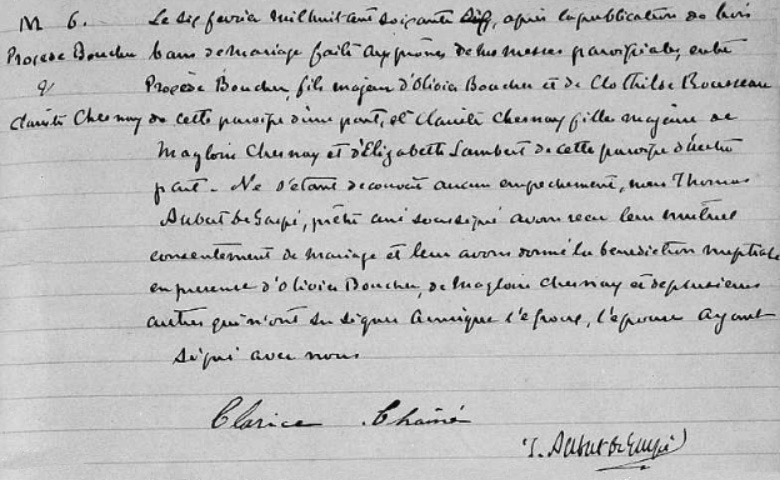 M 6. Le six fevrier mil huit cent soixante dix, après la publication de trois
Procède Boucher bans de mariage faite aux prônes de nos messes paroissiales, entre
& Procède Boucher, fils majeur d'Olivier Boucher et de Clothilde Rousseau
Clarice Chesnay de cette paroisse d'une part, et Clarice Chesnay fille majeure de
Magloire Chesnay et d'Elizabeth Lambert de cette paroisse d'autre
part. Ne s'étant decouvert aucun empechement, nous Thomas
Aubert de Gaspé, prêtre curé soussigné avons reçu leur mutuel
consentement de mariage et leur avons donné la benediction nuptiale
en presence d'Olivier Boucher, de Magloire Chesnay et de plusieurs
autres qui n'ont su signer ainsi que l'epoux, l'epouse ayant
signé avec nous
Clarice Chainé
T. Aubert de Gaspé